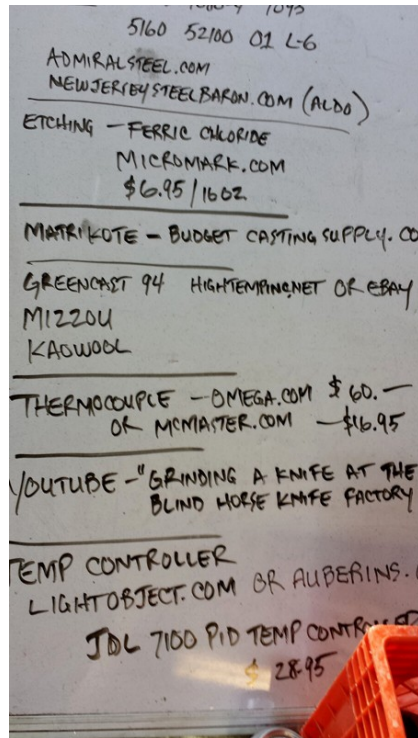 1095
5160 52100 O1 L-6
ADMIRALSTEEL.COM
NEWJERSEYSTEELBARON.COM (ALDO)
ETCHING - FERRIC CHLORIDE
MICROMARK.COM
$6.95/16OZ
MATRIKOTE - BUDGET CASTING SUPPLY.CO
GREENCAST 94 HIGHTEMPINC.NET OR EBAY
MIZZOU
KAOWOOL
THERMOCOUPLE - OMEGA.COM $60.—
OR MCMASTER.COM - $16.95
YOUTUBE - "GRINDING A KNIFE AT THE
BLIND HORSE KNIFE FACTORY
TEMP CONTROLLER
LIGHTOBJECT.COM OR AUBERINS.
JDL 7100 PID TEMP CONTROLLER
$ 28.95